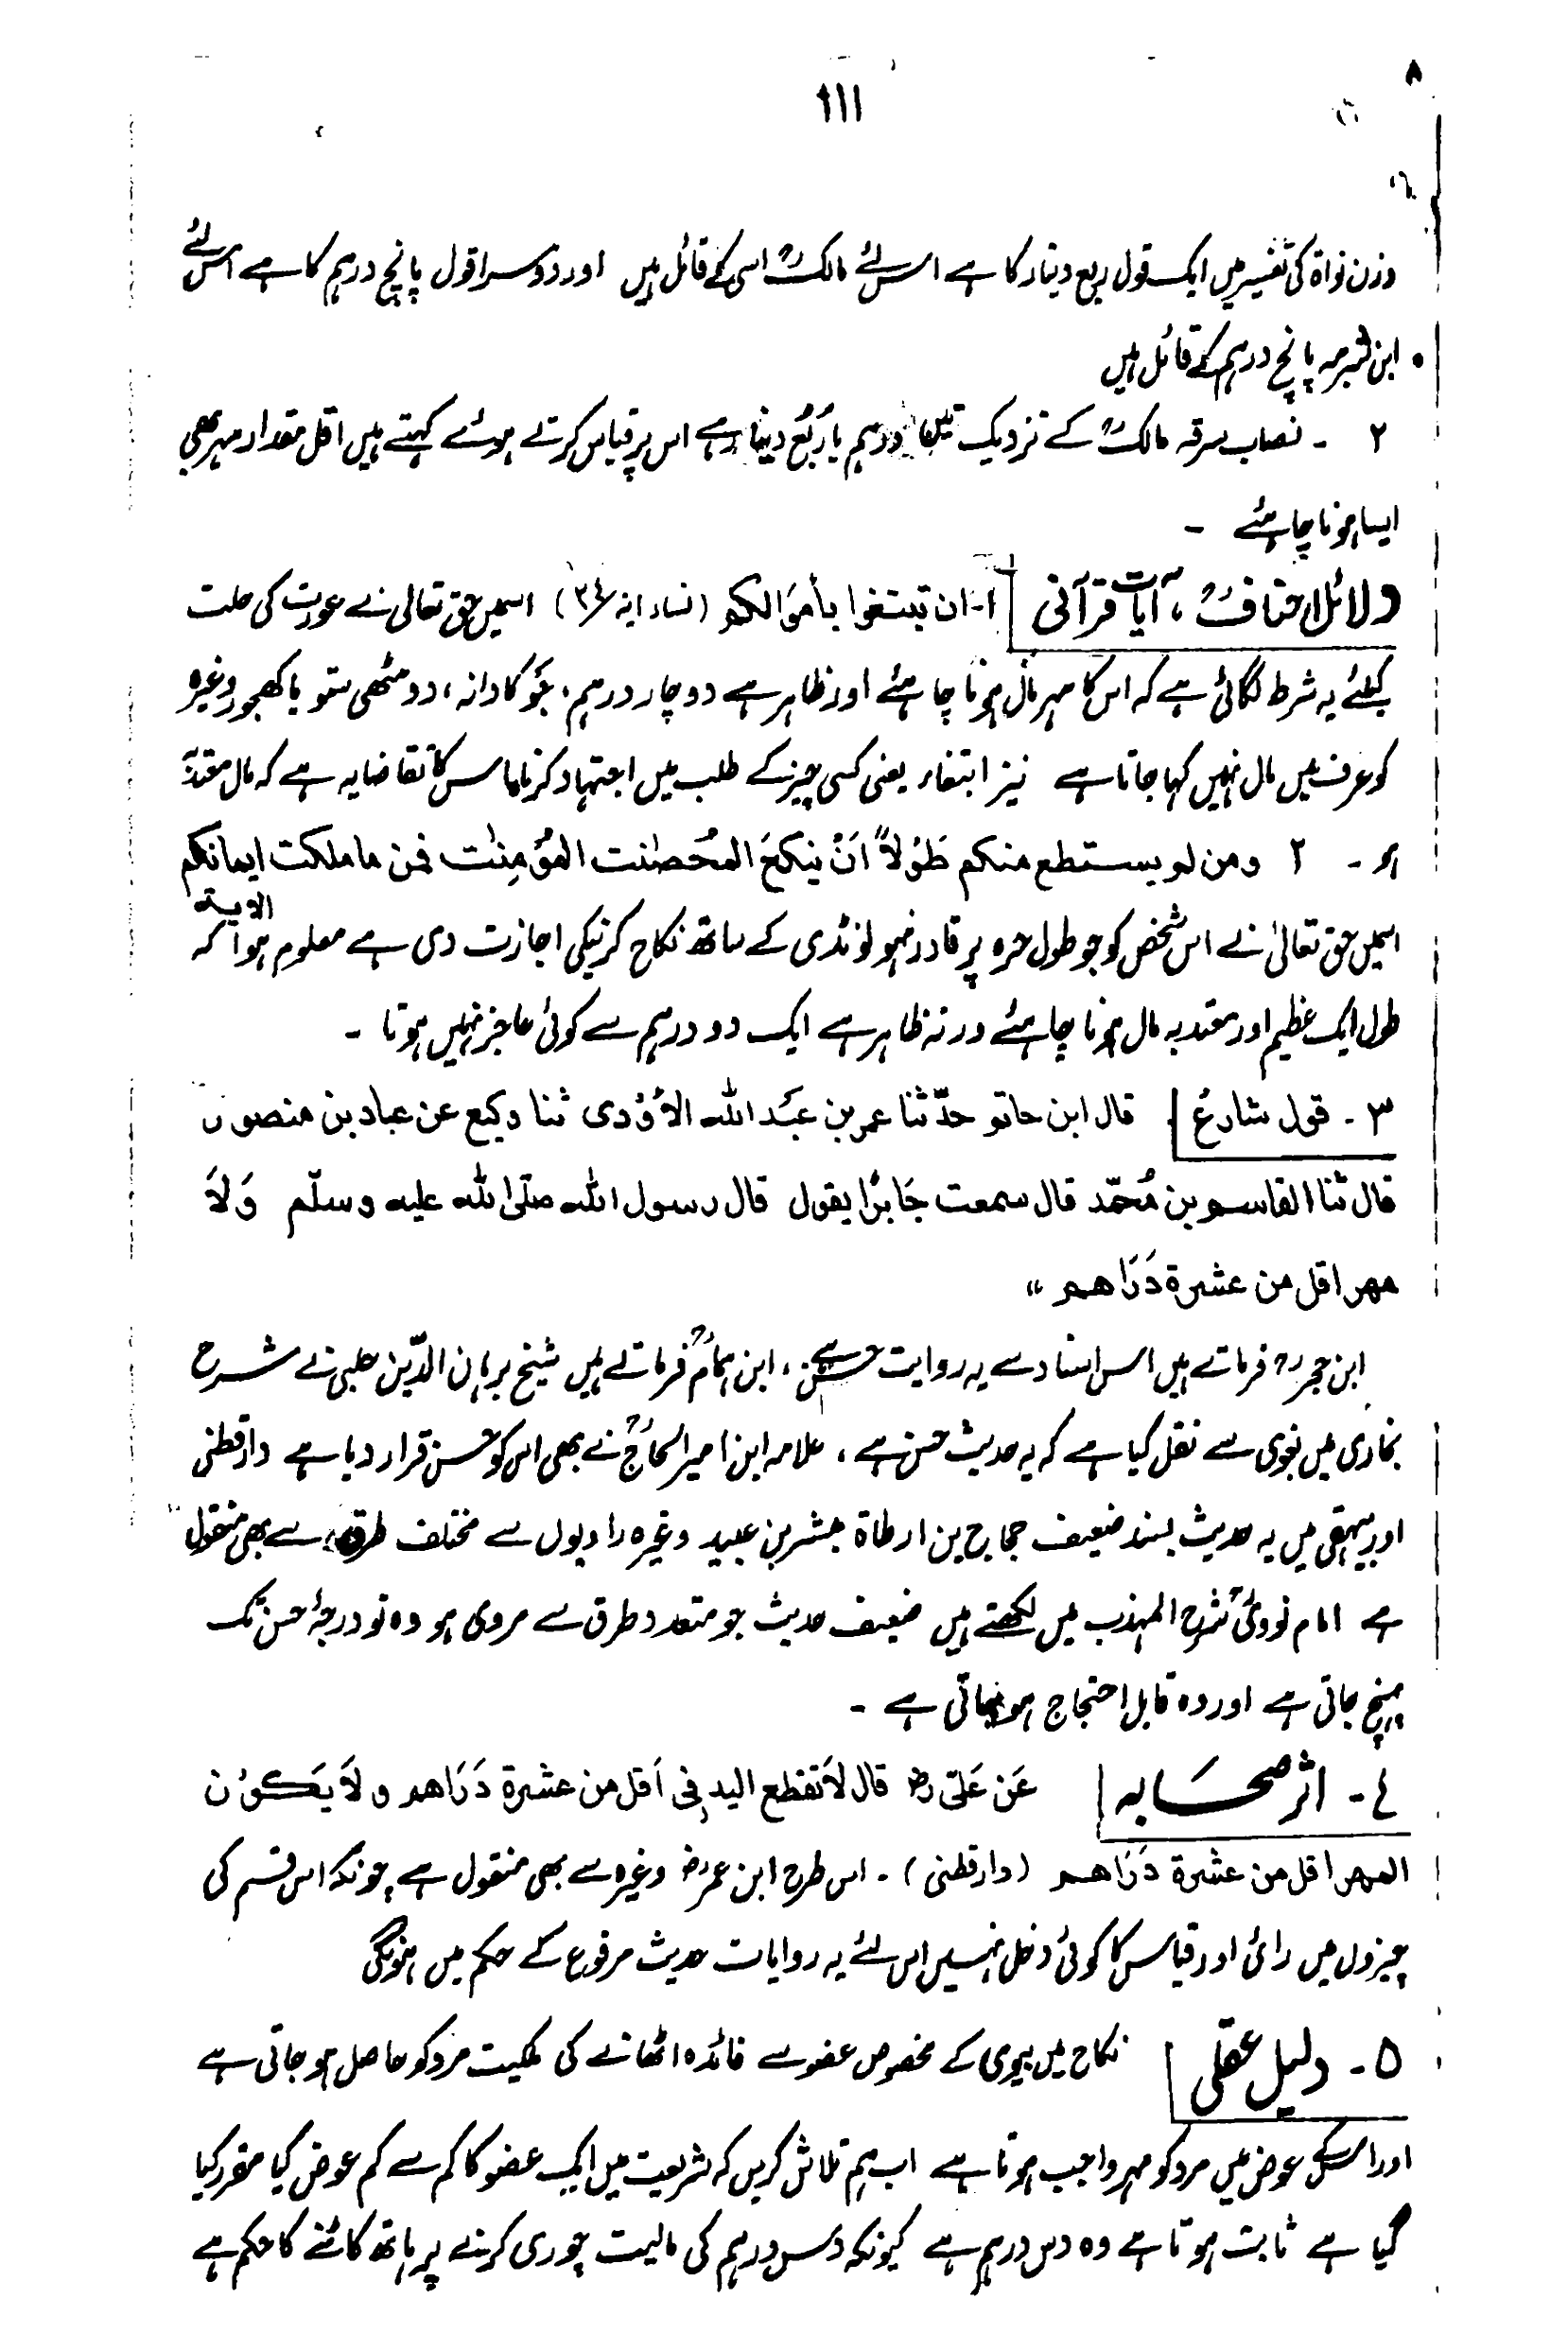 ۱۱۱
وزن نواۃ کی تفسیر میں ایک قول ربع دینار کا ہے اس لئے مالکؒ اسی کے قائل ہیں اور دوسرا قول پانچ درہم کا ہے اس لئے
ابن شبرمہ پانچ درہم کے قائل ہیں
۲ ۔ نصاب سرقہ مالکؒ کے نزدیک تین درہم یا رُبُع دینار ہے اس پر قیاس کرتے ہوئے کہتے ہیں اقل مقدار مہر بھی
ایسا ہونا چاہئے ۔
دلائل احنافؒ ، آیات قرآنی ۱۔ ان تبتغوا بأموَالکم (نساء ایۃ ۲۴) اسمیں حق تعالی نے عورت کی حلت
کیلئے یہ شرط لگائی ہے کہ اس کا مہر مال ہونا چاہئے اور ظاہر ہے دو چار درہم، جَو کا دانہ، دو مٹھی ستو یا کھجور وغیرہ
کو عرف میں مال نہیں کہا جاتا ہے نیز ابتغاء یعنی کسی چیز کے طلب میں اجتہاد کرنا اس کا تقاضا یہ ہے کہ مال معتدبہ
ہو ۔ ۲ ومن لم یستطع منکم طَوْلاً اَنْ ینکحَ المُحصَنٰت المؤمِنٰت فمن ما ملکت ایمانکم الایۃ
اسمیں حق تعالیٰ نے اس شخص کو جو طول حرہ پر قادر نہو لونڈی کے ساتھ نکاح کرنیکی اجازت دی ہے معلوم ہوا کہ
طول ایک عظیم اور معتد بہ مال ہونا چاہئے ورنہ ظاہر ہے ایک دو درہم سے کوئی عاجز نہیں ہوتا ۔
۳ ۔ قول شارعؑ قال ابن حاتم حدّثنا عمر بن عبَد اللہ الأوْدی ثنا وکیع عن عباد بن منصور
قال ثنا القاسم بن مُحمّد قال سمعت جَابرًا یقول قال رسول اللہ صلّی اللہ علیہ وسلّم وَلاَ
مھر اقل من عشرۃ دَرَاھم "
ابن حجرؒ فرماتے ہیں اس اسناد سے یہ روایت حسن ہے ، ابن الہمامؒ فرماتے ہیں شیخ برہان الدّین حلبی نے شرح
بخاری میں بغوی سے نقل کیا ہے کہ یہ حدیث حسن ہے ، علامہ ابن امیر الحاجؒ نے بھی اس کو حسن قرار دیا ہے دارقطنی
اور بیہقی میں یہ حدیث بسند ضعیف حجاج بن ارطاۃ مبشر بن عبید وغیرہ راویوں سے مختلف طرق سے بھی منقول
ہے امام نوویؒ شرح المہذب میں لکھتے ہیں ضعیف حدیث جو متعدد طرق سے مروی ہو وہ تو درجۂ حسن تک
پہنچ جاتی ہے اور وہ قابل احتجاج ہو جاتی ہے ۔
۴ ۔ اثر صحَابہ عَن عَلیّ رض قال لاَ تقطع الید فی اَقل من عشرۃ دَرَاھم ولاَ یَکوْن
المھر اقل من عشرۃ دَرَاھم (دارقطنی) ۔ اس طرح ابن عمر رض وغیرہ سے بھی منقول ہے چونکہ اس قسم کی
چیزوں میں رائ اور قیاس کا کوئی دخل نہیں اس لئے یہ روایات حدیث مرفوع کے حکم میں ہونگی
۵ ۔ دلیل عقلی نکاح میں بیوی کے مخصوص عضو سے فائدہ اٹھانے کی ملکیت مرد کو حاصل ہو جاتی ہے
اور اسکے عوض میں مرد کو مہر واجب ہوتا ہے اب ہم تلاش کریں کہ شریعت میں ایک عضو کا کم سے کم عوض کیا مقرر کیا
گیا ہے ثابت ہوتا ہے وہ دس درہم ہے کیونکہ دس درہم کی مالیت چوری کرنے پر ہاتھ کاٹنے کا حکم ہے